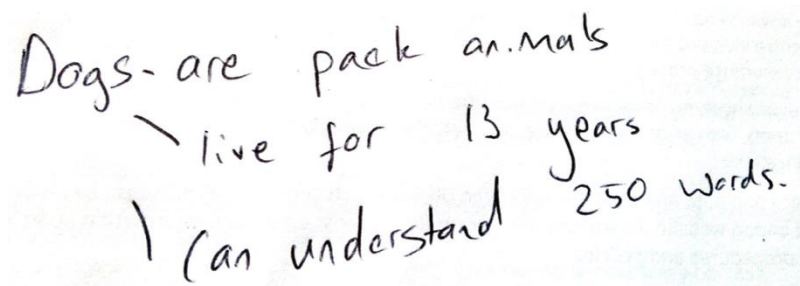 Dogs - are pack animals
\ live for 13 years
\ can understand 250 words.